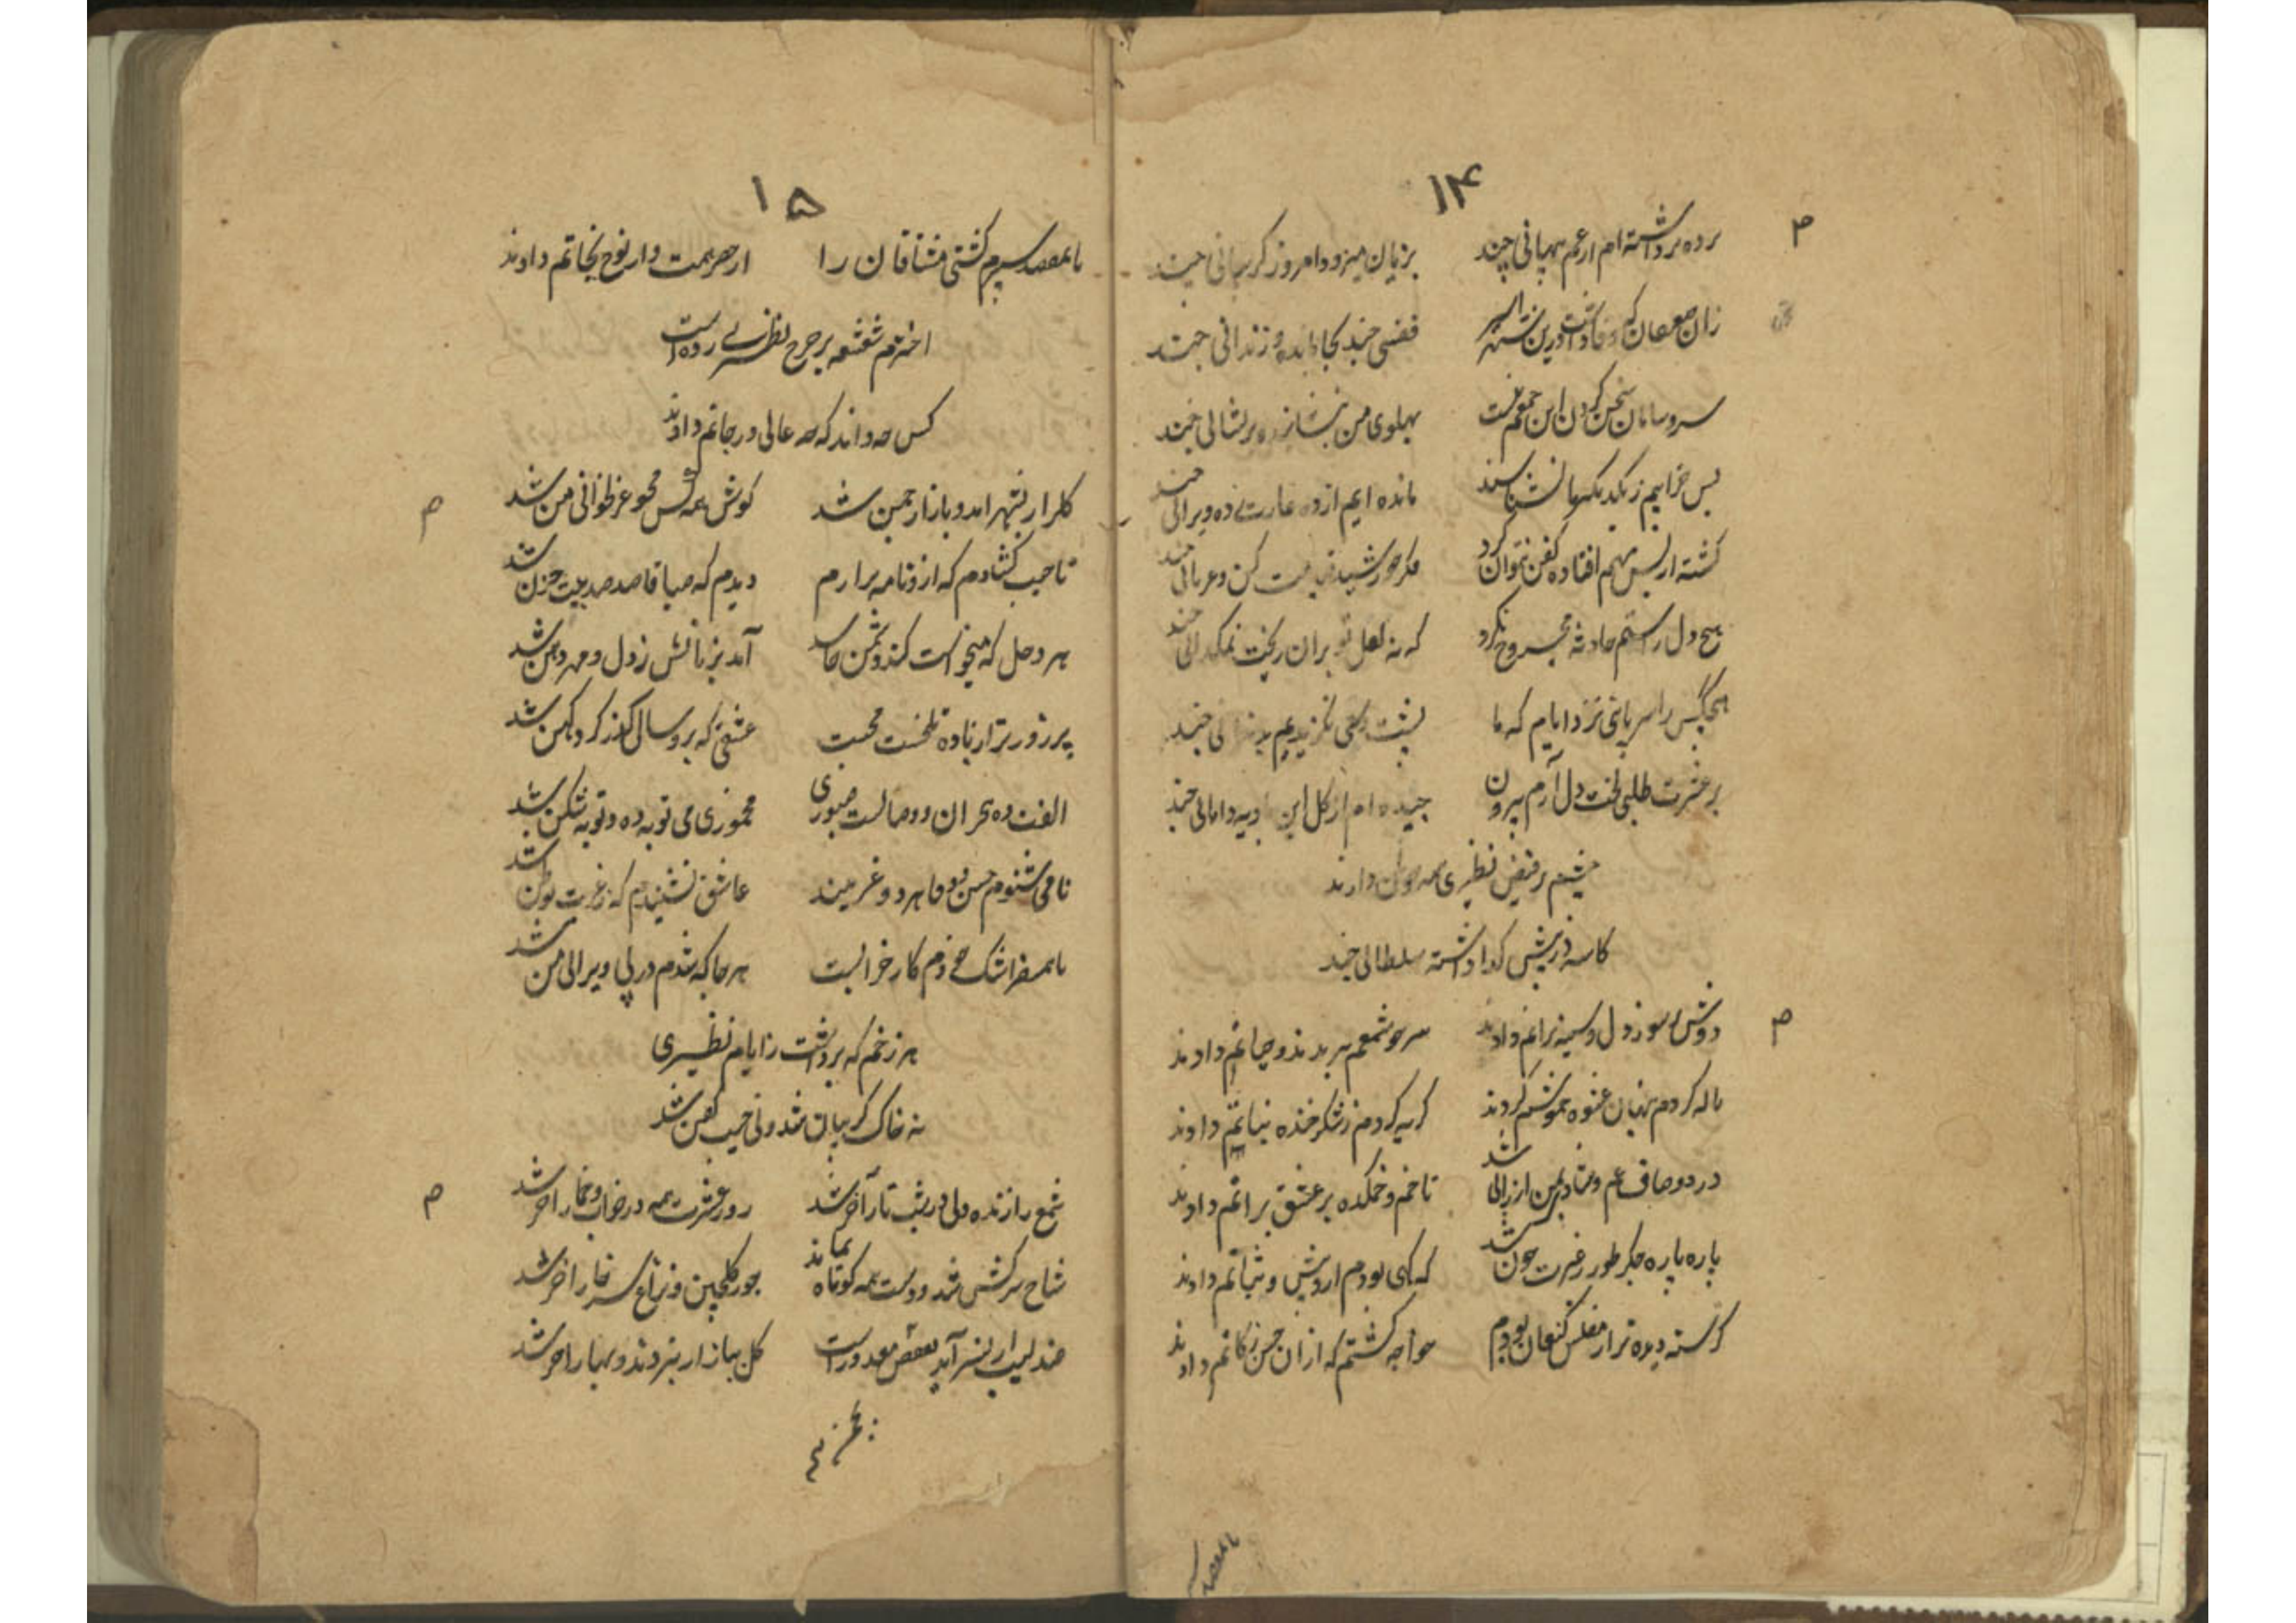 ۱۴
م
پرده برداشته‌ام از غم پنهانی چند بزیان میرود امروز گریبانی چند
زان ضعیفان که وفا داشت درین شهر اسیر قفسی چند بجا مانده و زندانی چند
سر و سامان سخن کردن این جمعم نیست پهلوی من بنشانید پریشانی چند
بس خرابیم ز یکدیگرمان نشناسند مانده ایم از ده غارت زده ویرانی چند
کشته از بس بهم افتاده کفن نتوان کرد فکر خورشید قیامت کن و عریانی چند
هیچ دل را ستم حادثه مجروح نکرد که نه لعل تو بران ریخت نمکدانی چند
هیچکس را سر پائی نزد ایام که ما پشت دستی نگزیدیم بدندانی چند
بر عشرت طلبی لخت دل آرم بیرون چیده ام از گل این بادیه دامانی چند
چشم بر فیض نظیری همه خوبان دارند
کاسه در پیش گدا داشته سلطانی چند
م
دوش بر سوز دل و سینه براتم دادند سر چو شمعم ببریدند و حیاتم دادند
ناله کردم بنهان عشوه خموشم کردند گریه کردم ز شکر خنده نباتم دادند
درد و صاف غم و شادی بمن ارزانی شد تا خم و خمکده بر عشق براتم دادند
پاره پاره جگر طور ز غیرت خون شد که کهی بودم از ویش و ثباتم دادند
گرسنه دیده تر از مفلس کنعان بودم خواجه گشتم که ازان حسن زکاتم دادند
تا بمقصد
۱۵
تا بمقصد سپرم کشتی مشتاقان را از صر همت دار نوح نجاتم دادند
اخترم شعشعه بر چرخ نظیری زده است
کس چه داند که چه عالی درجاتم دادند
م
گلزار بشهر آمد و بازار چمن شد گوش همه کس محو غزلخوانی من شد
تا جیب گشادم که ازو نامه برارم دیدم که صبا قاصد صد بیت حزن شد
هر دخل که میخواست کند دشمن حاسد آمد بزبانش ز دل و مهر دهن شد
پرزورتر از باده تلخست محبت عشقی که برو سال گذر کرد کهن شد
الفت ده هجران و وصالست صبوری مخموری می توبه ده و توبه شکن شد
تا می شنوم حسن و وفا هر دو غریبند عاشق نشنیدم که ز غربت بوطن شد
با همسفر اشک خودم کار خرابست هر جا که شدم در پی ویرانی من شد
هر زخم که برداشت ز ایام نظیری
نه خاک گریبان شد و نی جیب کفن شد
م
شمع را زنده دلی در شب تار آخر شد روز عشرت همه در خواب و خمار آخر شد
شاخ سرکش شد و دست همه کوتاه بماند جور گلچین و نزاع سر خار آخر شد
عندلیب ار بسر آید بقفس معذور است گل ببازار ببردند و بهار آخر شد